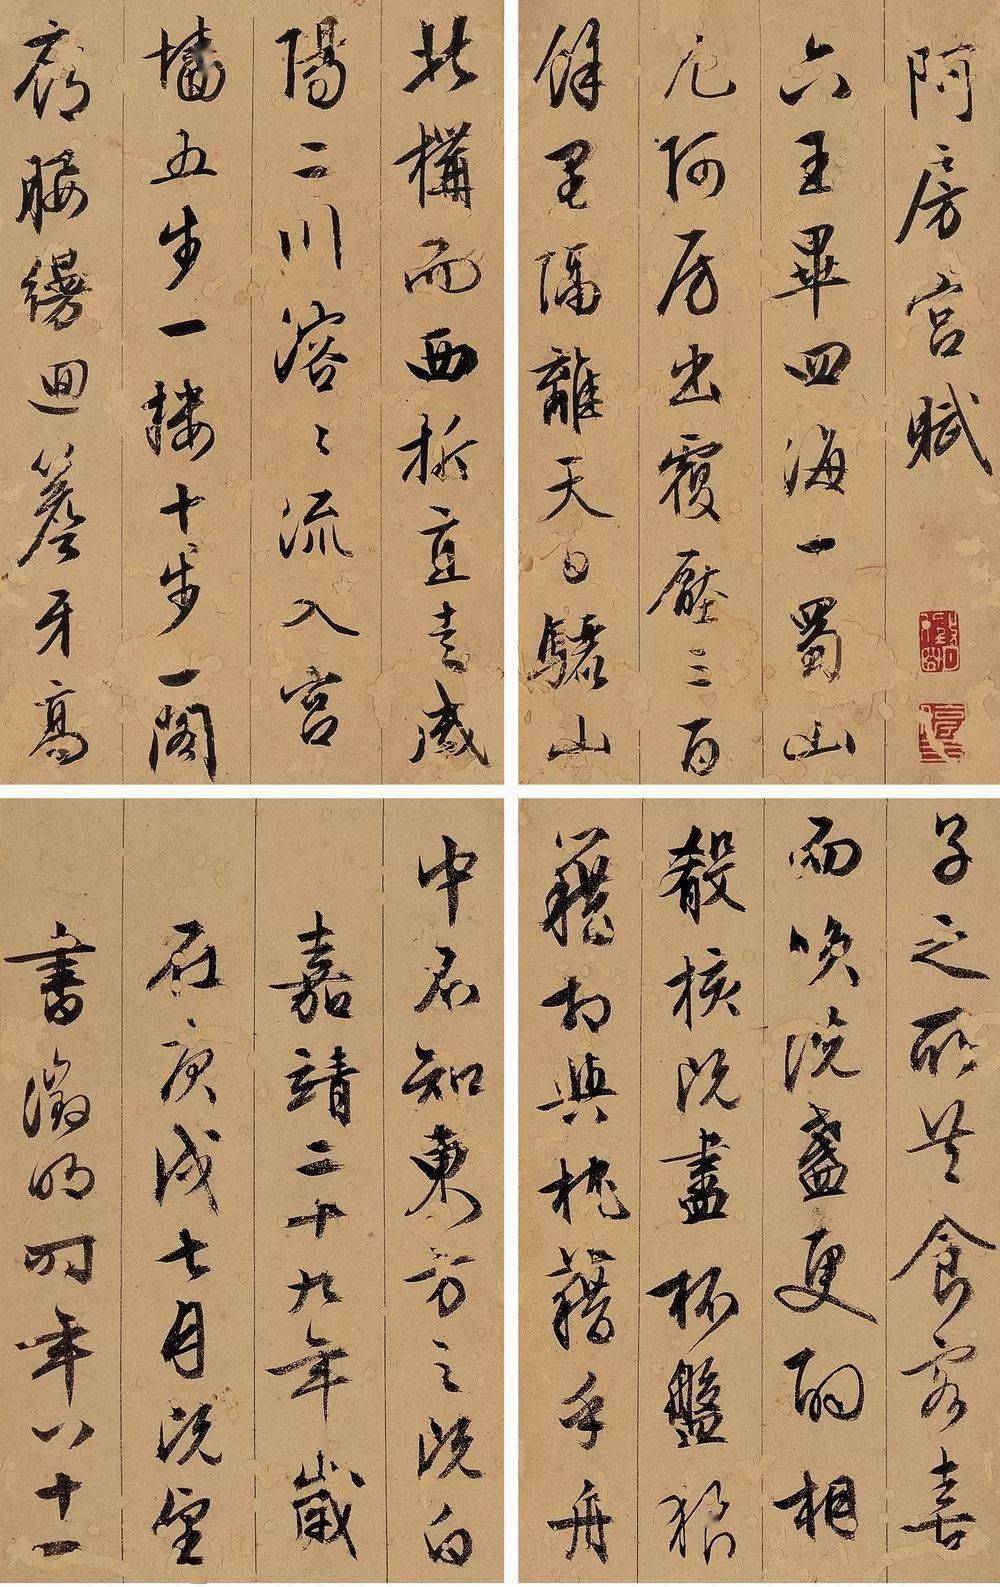 阿房宮賦
六王畢四海一蜀山
兀阿房出覆壓三百
餘里隔離天日驪山
北構而西折直走咸
陽二川溶〻流入宮
墻五步一樓十步一閣
廊腰縵迴簷牙高
子之所共食客喜
而咲洗盞更酌相
殽核既盡杯盤狼
藉相與枕藉乎舟
中不知東方之既白
嘉靖二十九年歲
在庚戌七月既望
書徵明時年八十一